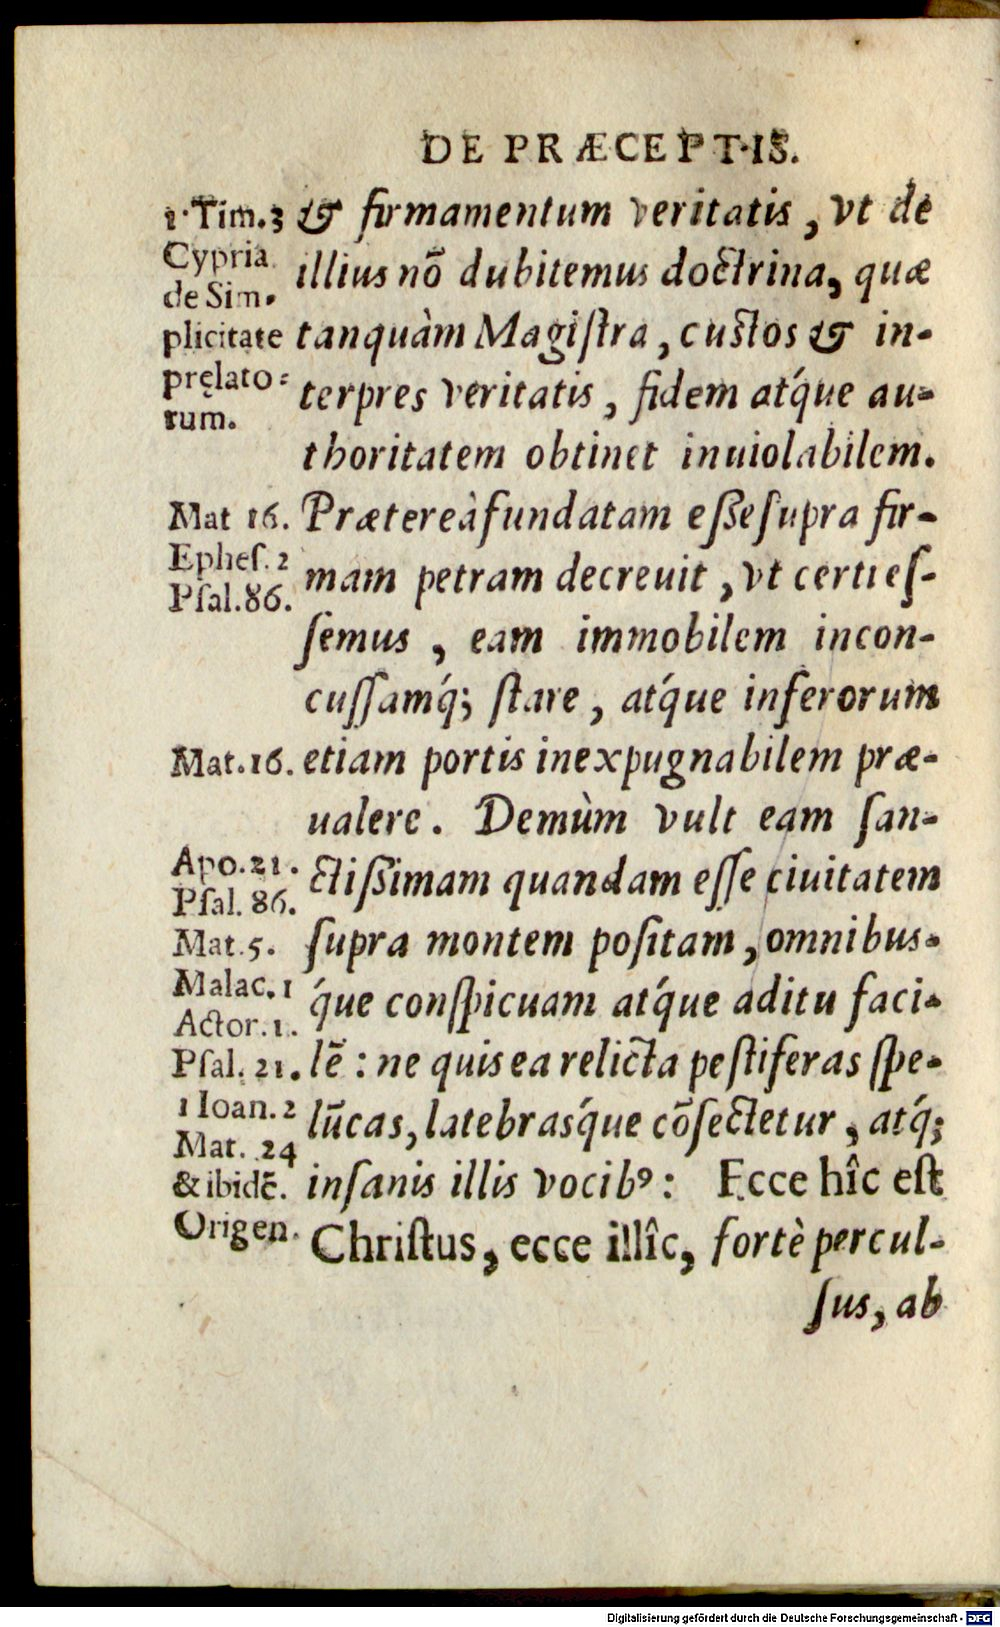 DE PRÆCEPTIS.
1. Tim. 3
Cypria.
de Sim-
plicitate
pręlato-
rum.
& firmamentum veritatis, vt de
illius nō dubitemus doctrina, quæ
tanquàm Magiſtra, cuſtos & in-
terpres veritatis, fidem atq́ue au-
thoritatem obtinet inuiolabilem.
Mat 16.
Epheſ. 2
Pſal. 86.
Prætereà fundatam eßе ſupra fir-
mam petram decreuit, vt certi eſ-
ſemus, eam immobilem incon-
cuſſamq́; ſtare, atq́ue inferorum
Mat. 16.
etiam portis inexpugnabilem præ-
ualere. Demùm vult eam ſan-
Apo. 21.
Pſal. 86.
Mat. 5.
Malac. 1
Actor. 1.
Pſal. 21.
1 Ioan. 2
Mat. 24
& ibidē.
Origen.
ctißimam quandam eſſe ciuitatem
ſupra montem poſitam, omnibus-
q́ue conſpicuam atq́ue aditu faci-
lē: ne quis ea relicta peſtiferas ſpe-
lūcas, latebrasq́ue cōſectetur, atq́;
inſanis illis vocibꝰ: Ecce hîc eſt
Chriſtus, ecce illîc, fortè percul-
ſus, ab
Digitalisierung gefördert durch die Deutsche Forschungsgemeinschaft - DFG